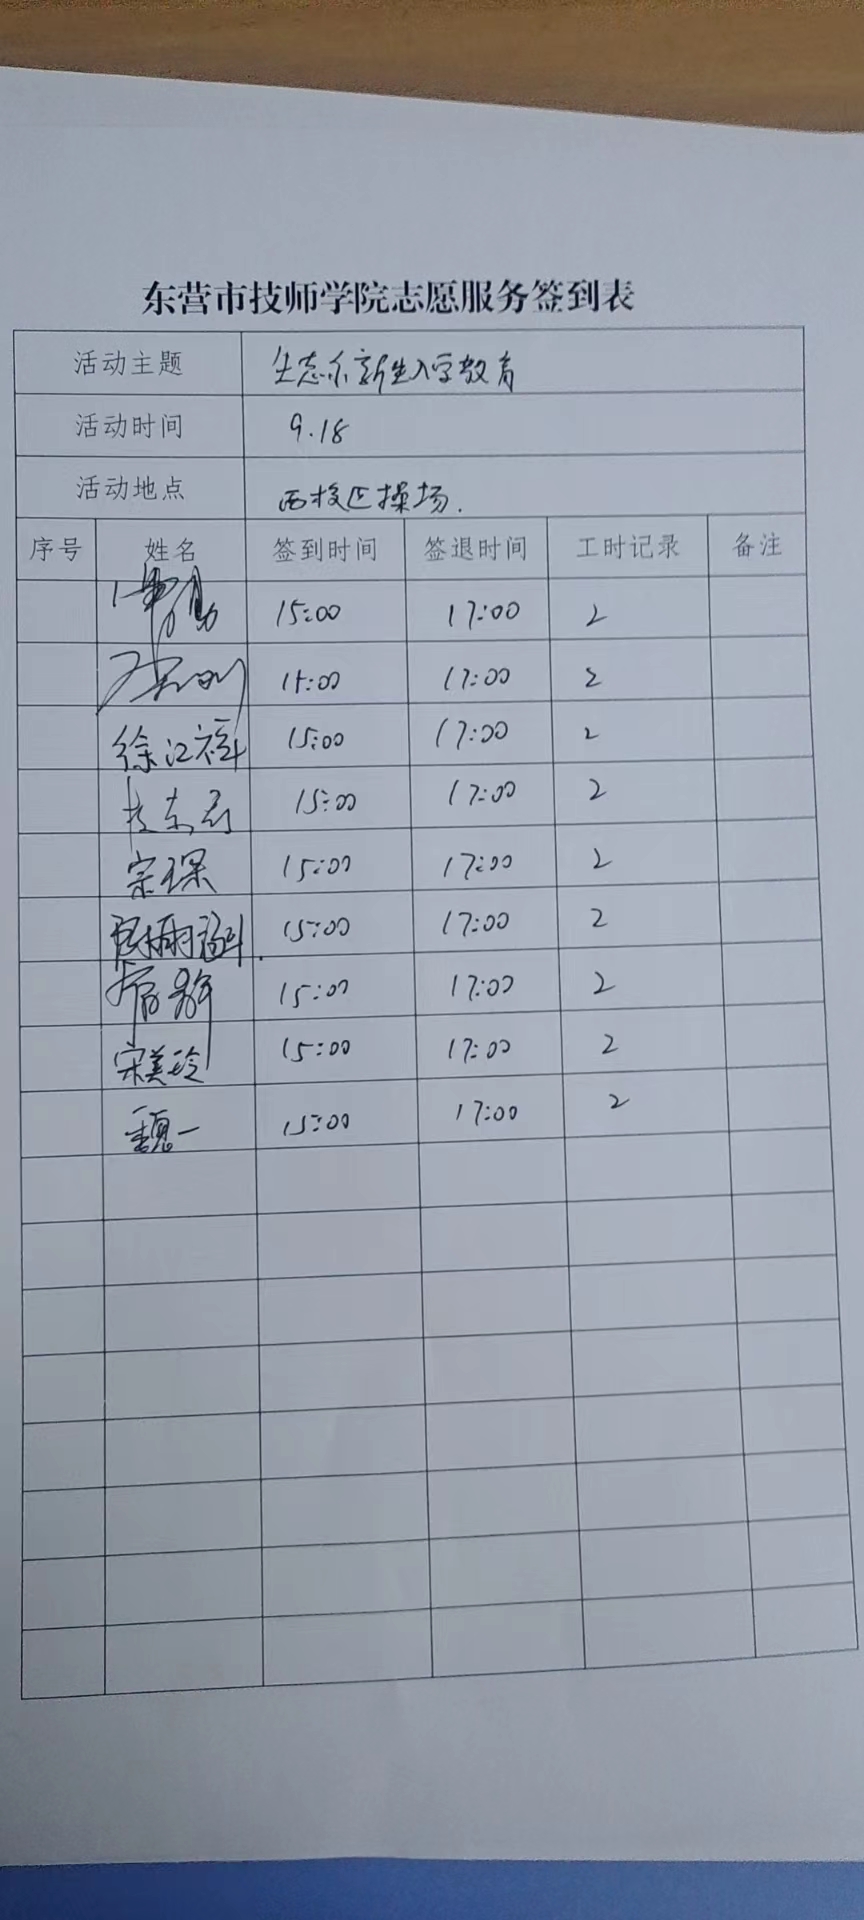 东营市技师学院志愿服务签到表
活动主题 生态系新生入学教育
活动时间 9.18
活动地点 西校区操场.
序号 姓名 签到时间 签退时间 工时记录 备注
15:00 17:00 2
15:00 17:00 2
徐江福 15:00 17:00 2
15:00 17:00 2
宗琛 15:00 17:00 2
15:00 17:00 2
15:00 17:00 2
宋美玲 15:00 17:00 2
魏一 15:00 17:00 2